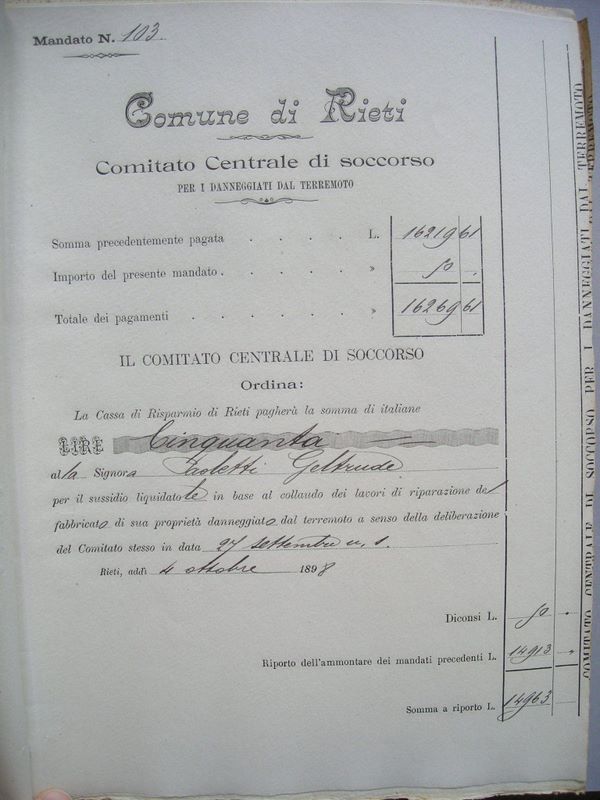 Mandato N. 103
Comune di Rieti
Comitato Centrale di soccorso
PER I DANNEGGIATI DAL TERREMOTO
Somma precedentemente pagata . . . . L. 16219 61
Importo del presente mandato . . . . . » 50 .
Totale dei pagamenti . . . . . » 16269 61
IL COMITATO CENTRALE DI SOCCORSO
Ordina:
La Cassa di Risparmio di Rieti pagherà la somma di italiane
LIRE Cinquanta
alla Signora Paoletti Geltrude
per il sussidio liquidatole in base al collaudo dei lavori di riparazione del
fabbricato di sua proprietà danneggiato dal terremoto a senso della deliberazione
del Comitato stesso in data 27 settembre u. s.
Rieti, addì 4 ottobre 1898
Diconsi L. 50 .
Riporto dell'ammontare dei mandati precedenti L. 14913
Somma a riporto L. 14963
COMITATO CENTRALE DI SOCCORSO PER I DANNEGGIATI DAL TERREMOTO